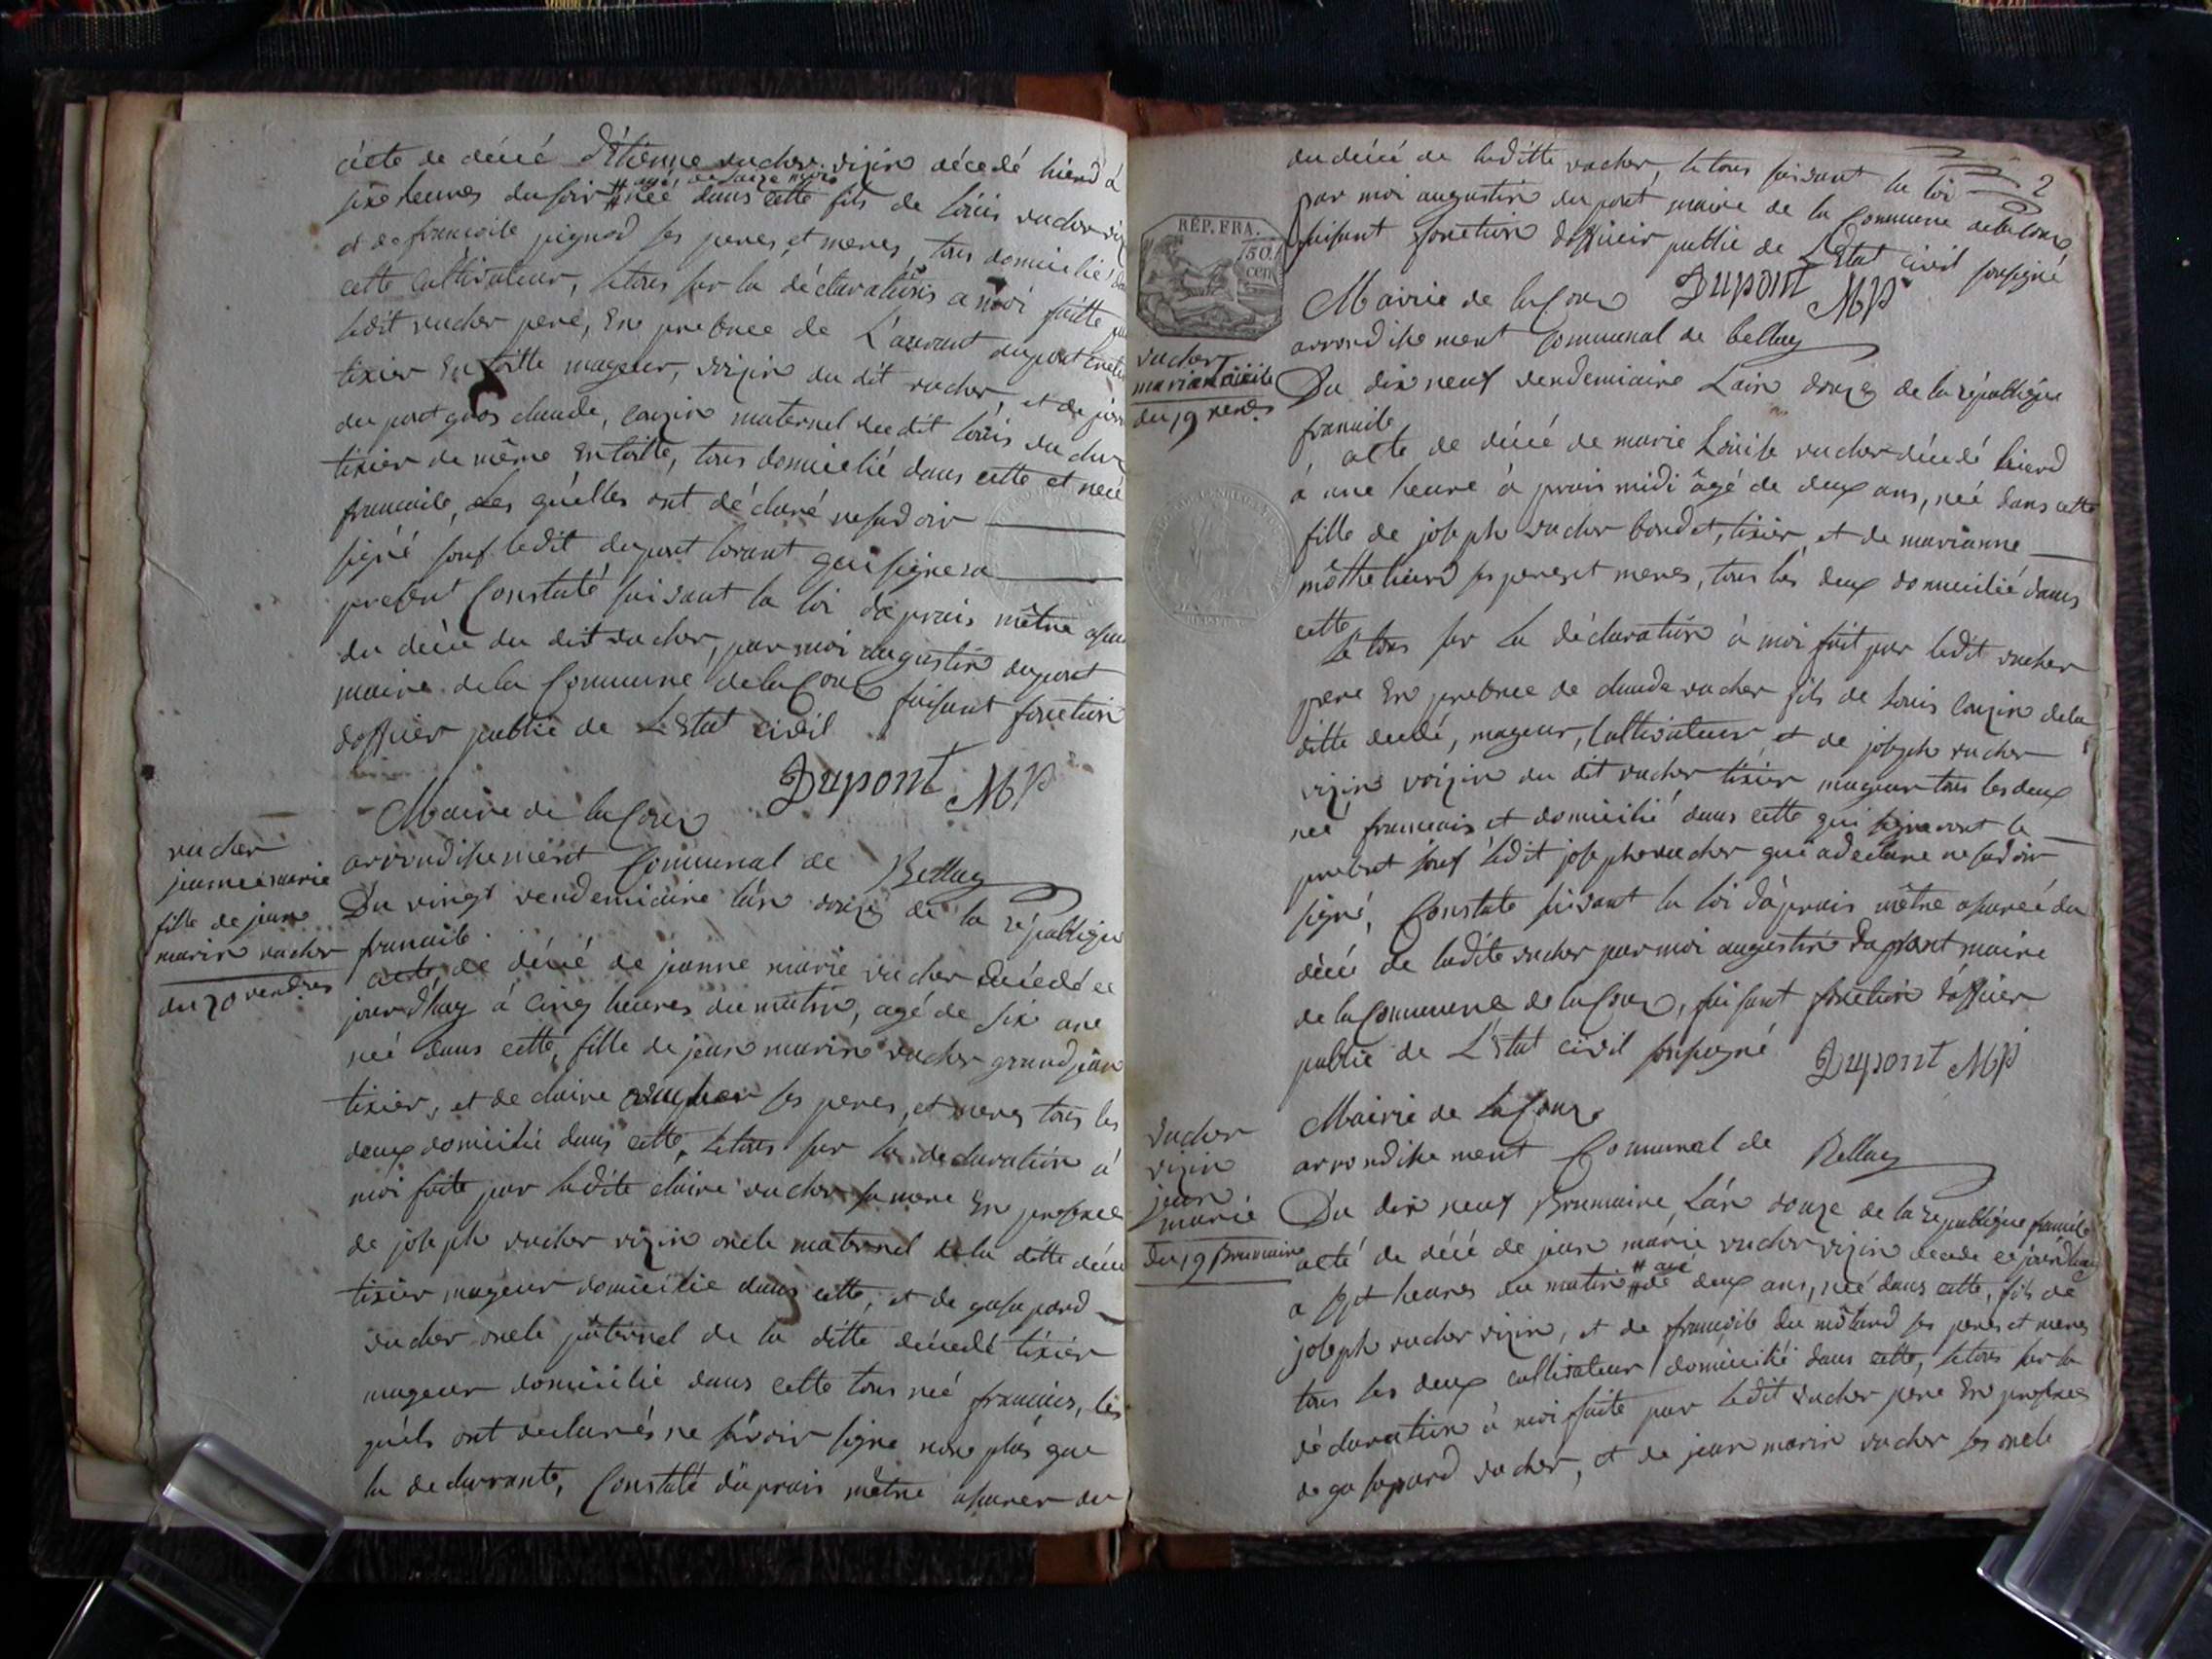 acte de décé d'Etienne vucher vizin décedé hierd à
sixe heures du soir # née dans cette fils de Louis vucher viz
# agé de saize mois
et de francoise pignod ses peres et meres, tous domicilié da
cette Cultivateur, le tous sur la déclaratiõis a moi faitte pa
ledit vucher pere, En presence de Laurant dupont
tixier En toille mageur, voizin du dit vucher, et de
du pont gros claude, couzin maternel du dit louis vucher
tixier de même En toille, tous domicilié dans cette et neé
francaise, Les quelles ont déclaré ne savoir
signé souf ledit dupont lorant qui signera
present Constaté suivant la loi d'aprais mêtre asur
du décé du dit vucher, par moi augustin dupont
maire de la Commune de la Coux faisant fonction
dofficier public de L'Etat civil
Dupont MP
Mairie de la Coux
arrondissement Communal de Belley
vucher
jeanne marie
fille de jean
marin vucher
du 20 vendres
Du vingt vendemiaire l'an douze de la république
francaise
acte de décé de jeanne marie vucher décedé ce
jourd'huy à Cinq heures du matin, agé de six ans
neé dans cette, fille de jean marin vucher grand jean
tixier, et de claire vucher ses peres, et meres tous les
deux domicilié dans cette, le tous sur la declaration à
moi faite par ladite claire vucher sa mere En presence
de joseph vucher vizin oncle maternel de la ditte décé
tixier mageur domicilié dans cette, et de gaspard
vucher oncle paternel de la ditte décedé tixier
mageur domicilié dans cette tous neé francais, les
quels ont declarés ne sávoir signe non plus que
la declarrante, Constaté d'aprais mêtré asurer du
2
du décé de laditte vucher, le tous suivant la loi
par moi augustin dupont maire de la Commune de la Coux
faisant fonction dofficier public de L'Etat civil sousigné
Dupont MP
RÉP. FRA.
50
cen
Mairie de la Coux
arrondissement Communal de belley
vucher
marie Louise
du 19 vend.
Du dix neuf vendemiaire Lan douze de la république
francaise
acte de décé de marie Louise vucher décedé hierd
a une heure à prais midi âgé de deux ans, neé dans cette
fille de joseph vucher bondet, tixier, et de marianne
ses peres et meres, tous les deux domicilié dans
cette
le tous sur la déclaration à moi fait par ledit vucher
pere En presence de claude vucher fils de Louis Couzin de la
ditte décedé, mageur, Cultivateur, et de joseph vucher
vizin voizin du dit vucher tixier mageur tous les deux
neé francais et domicilié dans cette qui signeront le
present souf ledit joseph vucher qui a declare ne savoir
signé, Constaté suivant la loi d'aprais mêtre asureé du
décé de ladite vucher par moi augustin dupont maire
de la Commune de la Coux, faisant fonction d'officier
public de L'Etat civil sousigné
Dupont MP
Mairie de la Coux
arrondissement Communal de Belley
vucher
vizin
jean
marie
du 19 Brumaire
Du dix neuf Brumaire, L'an douze de la republique francaise
acté de décé de jean marie vucher vizin decede ce jourd'huy
a sept heures du matin # de deux ans, neé dans cette, fils de
# age
joseph vucher vizin, et de francoise du môtard ses peres et meres
tous les deux cultivateur domicilié dans cette, le tous sur la
déclaration à moi faite par ledit vucher pere En presence
de gaspard vucher, et de jean marin vucher ses oncle